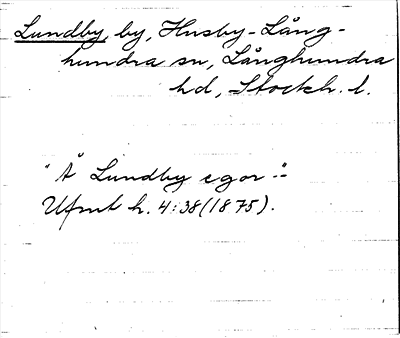 Lundby, by, Husby-Lång-
hundra sn, Långhundra
hd, Stockh. l.
"Å Lundby egor -"
Ufmt h. 4:38 (1875).